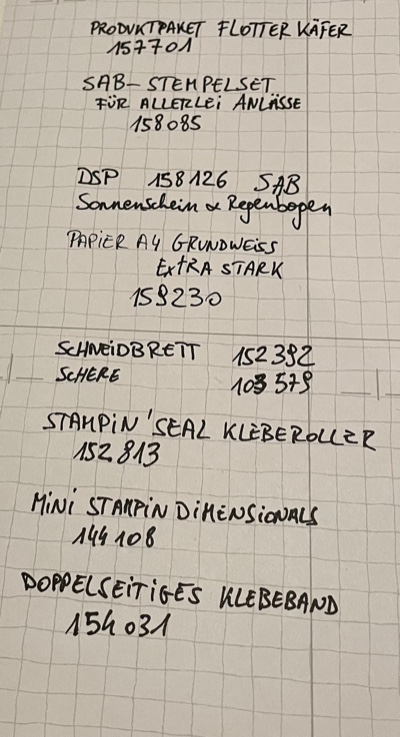 PRODUKTPAKET FLOTTER KÄFER
157701
SAB-STEMPELSET
FÜR ALLERLEI ANLÄSSE
158085
DSP 158126 SAB
Sonnenschein & Regenbogen
PAPIER A4 GRUNDWEISS
EXTRA STARK
159230
SCHNEIDBRETT 152392
SCHERE 103579
STAMPIN'SEAL KLEBEROLLER
152813
MINI STAMPIN DIMENSIONALS
144108
DOPPELSEITIGES KLEBEBAND
154031